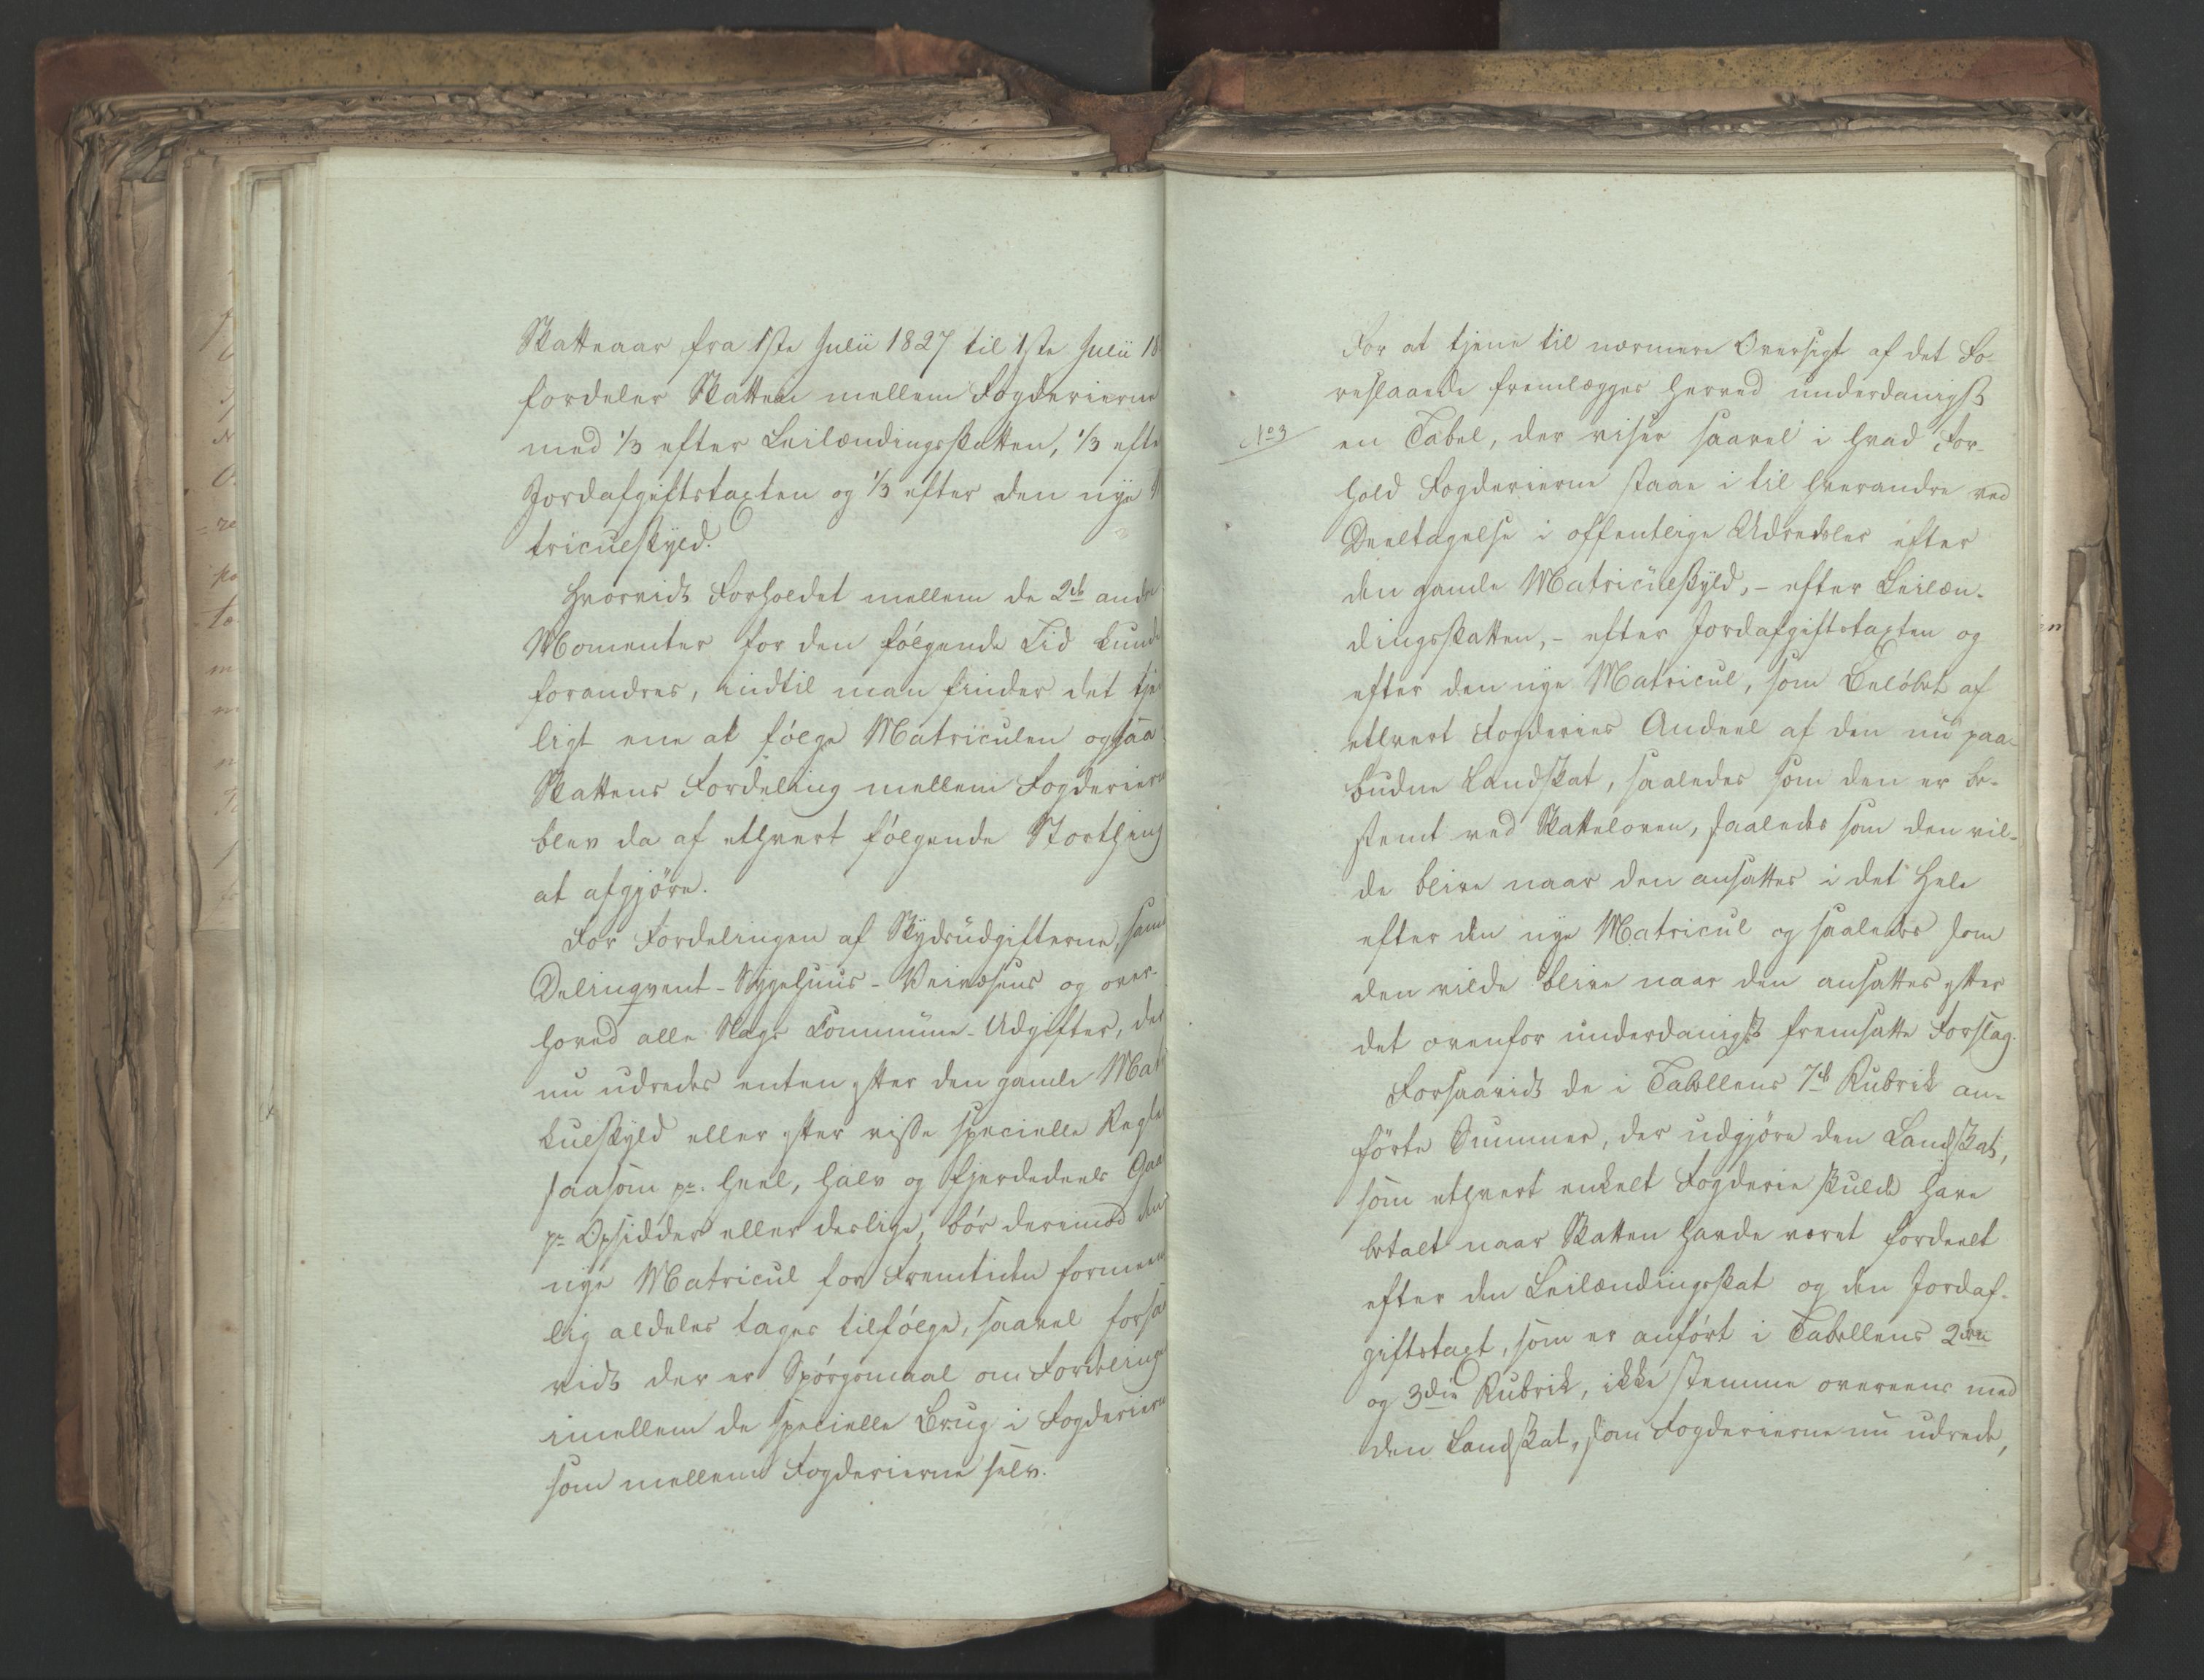 Skatteaar fra 1ste Julii 1827 til 1ste Julii 18
fordeler Skatten mellem Fogderierne
med 1/3 efter Leilændingsskatten, 1/3 efte
Jordafgiftstaxten og 1/3 efter den nye
triculskyld.
Hvorvidt Forholdet mellem de 2de andre
Momenter for den følgende Tid kunde
forandres, indtil man finder det tjen
ligt ene at følge Matriculen ogsaa
Skattens Fordeling mellem Fogderiern
blev da af ethvert følgende Storthing
at afgjöre.
For Fordelingen af Skydsudgifterne, samt
Delinqvent- Sygehuus- Veivæsens og over-
hoved alle Slags Commune-Udgifter, der
nu udredes enten efter den gamle Mat
kulskyld eller efter visse specielle Regler
saasom pr. heel, halv og fjerdedeels Gaa
pr Opsidder eller deslige, bör derimod den
nye Matricul for Fremtiden formeen
lig aldeles tages tilfølge, saavel forsaa
vidt der er Spørgsmaal om Fordeling
imellem de specielle Brug i Fogderiern
som mellem Fogderierne selv.
For at tjene til nærmere Oversigt af det Fo-
reslaaede fremlægges herved underdanigst
No 3
en Tabel, der viser saavel i hvad For-
hold Fogderierne staae i til hverandre ved
Deeltagelse i offentlige Udredsler efter
den gamle Matriculskyld, - efter Leilæn-
dingsskatten, - efter Jordafgiftstaxten og
efter den nye Matricul, som Beløbet af
ethvert Fogderies Andeel af den nu paa-
budne Landskat, saaledes som den er be-
stemt ved Skatteloven, saaledes som den vil-
de blive naar den ansattes i det Hele
efter den nye Matricul og saaledes som
den vilde blive naar den ansattes efter
det ovenfor underdanigst fremsatte Forslag.
Forsaavidt de i Tabellens 7de Rubrik an-
förte Summer, der udgjöre den Landskat,
som ethvert enkelt Fogderie skulde have
betalt naar Skatten havde været fordeelt
efter den Leilændingsskat og den Jordaf-
giftstaxt, som er anført i Tabellens 2den
og 3die Rubrik, ikke stemme overeens med
den Landskat, som Fogderierne nu udrede,